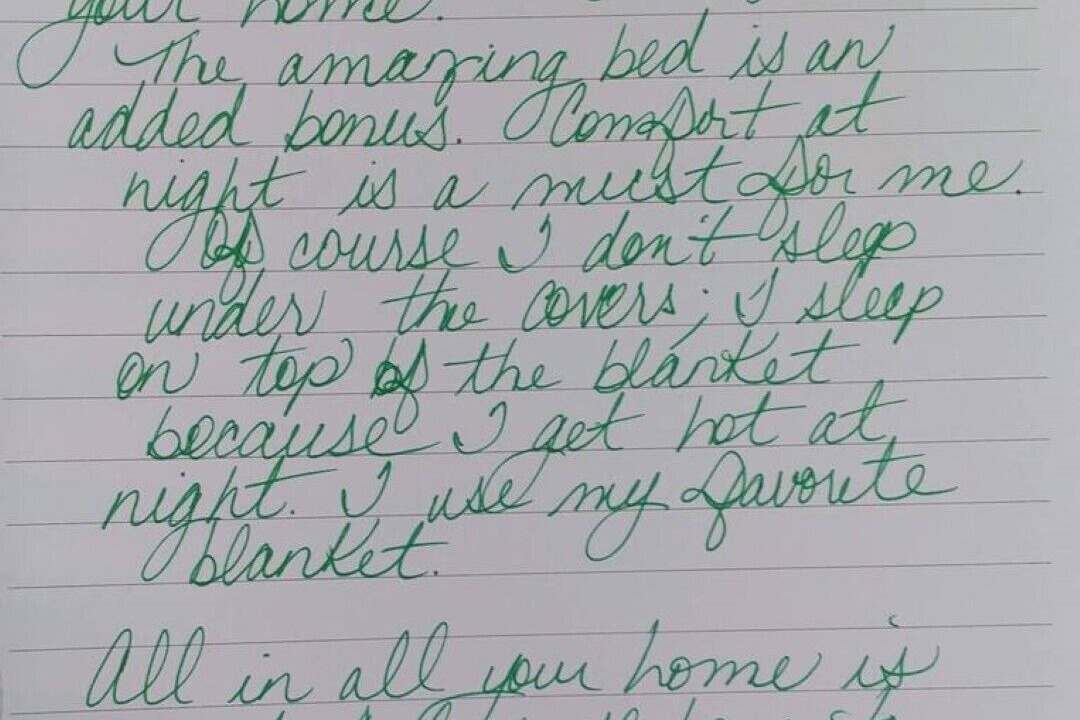 your home.
The amazing bed is an
added bonus. Comfort at
night is a must for me.
Of course I don't sleep
under the covers; I sleep
on top of the blanket
because I get hot at
night. I use my favorite
blanket.
All in all your home is